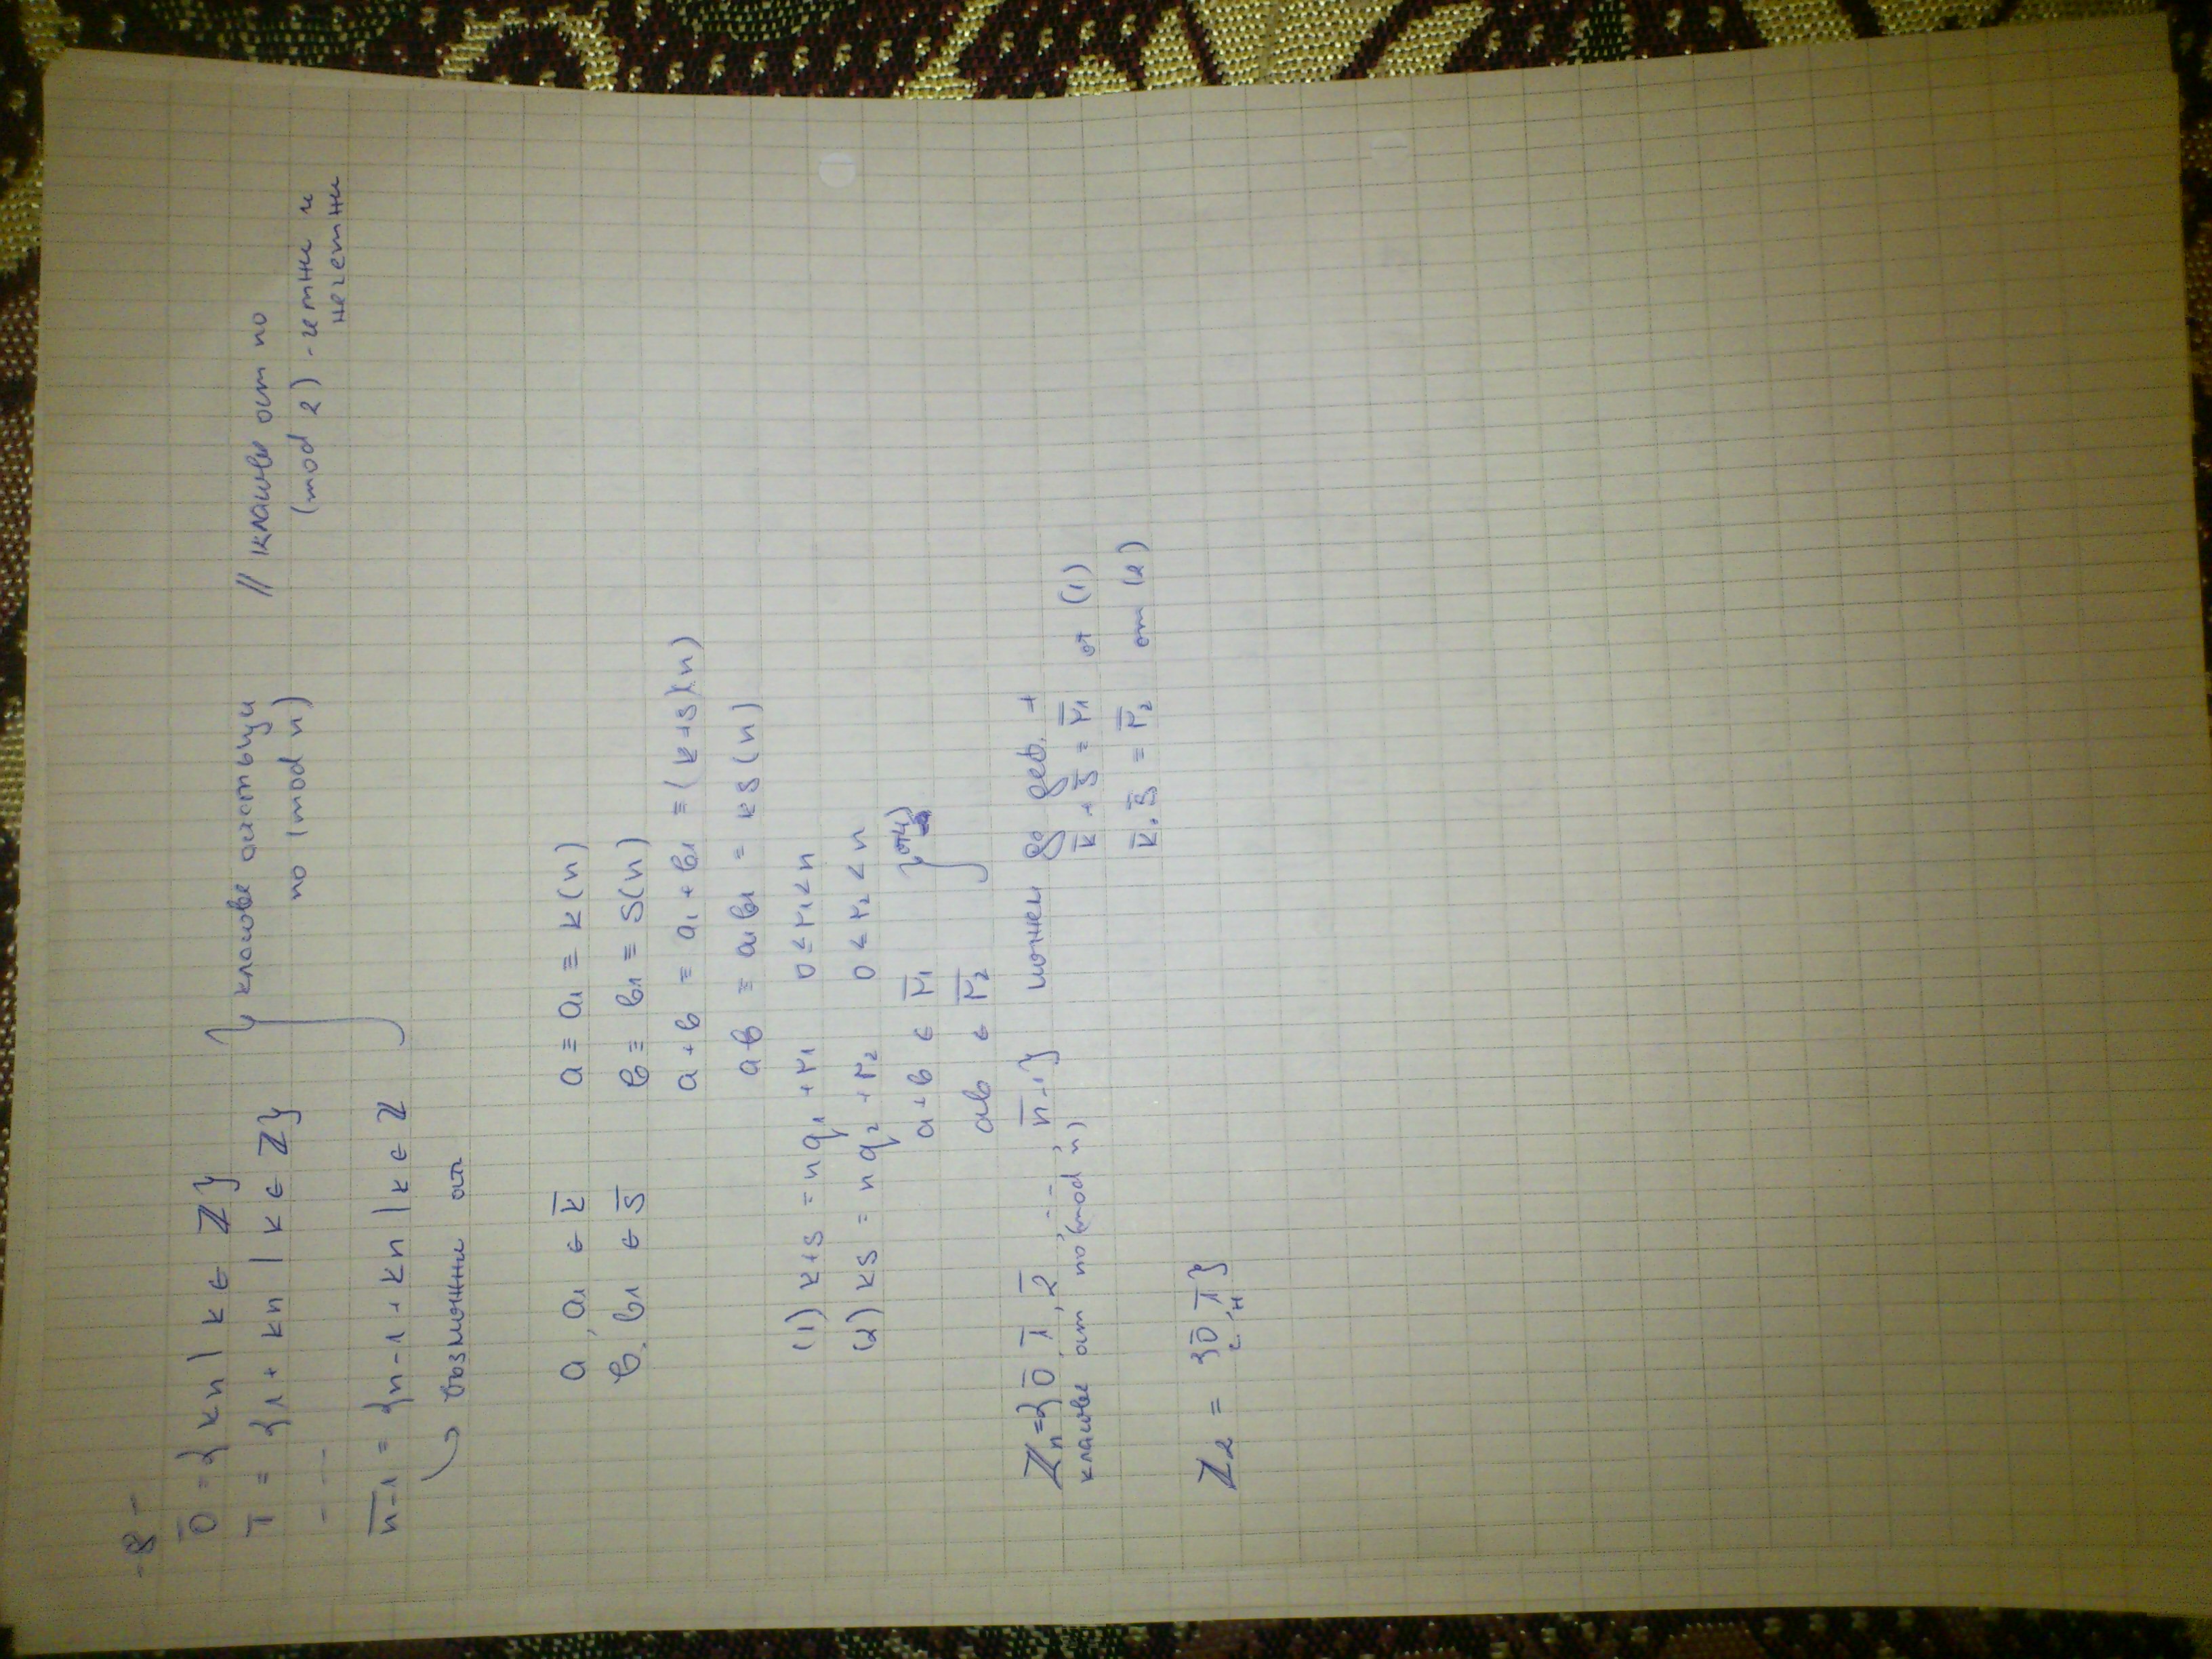 - 8 -
0̅ = { kn | k ∈ ℤ }
1̅ = { 1 + kn | k ∈ ℤ }
- - -
n-1̅ = { n-1 + kn | k ∈ ℤ
} класове остатъци
по (mod n)
// класове ост по
(mod 2) - четни и
нечетни
↳ възможни ост
a, a₁ ∈ k̅ a ≡ a₁ ≡ k (n)
b, b₁ ∈ s̅ b ≡ b₁ ≡ s (n)
a + b ≡ a₁ + b₁ ≡ (k+s)(n)
ab ≡ a₁b₁ ≡ ks (n)
(1) k+s = nq₁ + r₁ 0 ≤ r₁ < n
(2) ks = nq₂ + r₂ 0 ≤ r₂ < n
a + b ∈ r̅₁
ab ∈ r̅₂ }
ℤₙ = { 0̅, 1̅, 2̅, ..., n-1̅ } можем да деф. +
класове ост по (mod n)
k̅ + s̅ = r̅₁ от (1)
k̅ . s̅ = r̅₂ от (2)
ℤ₂ = { 0̅, 1̅ }
ч н